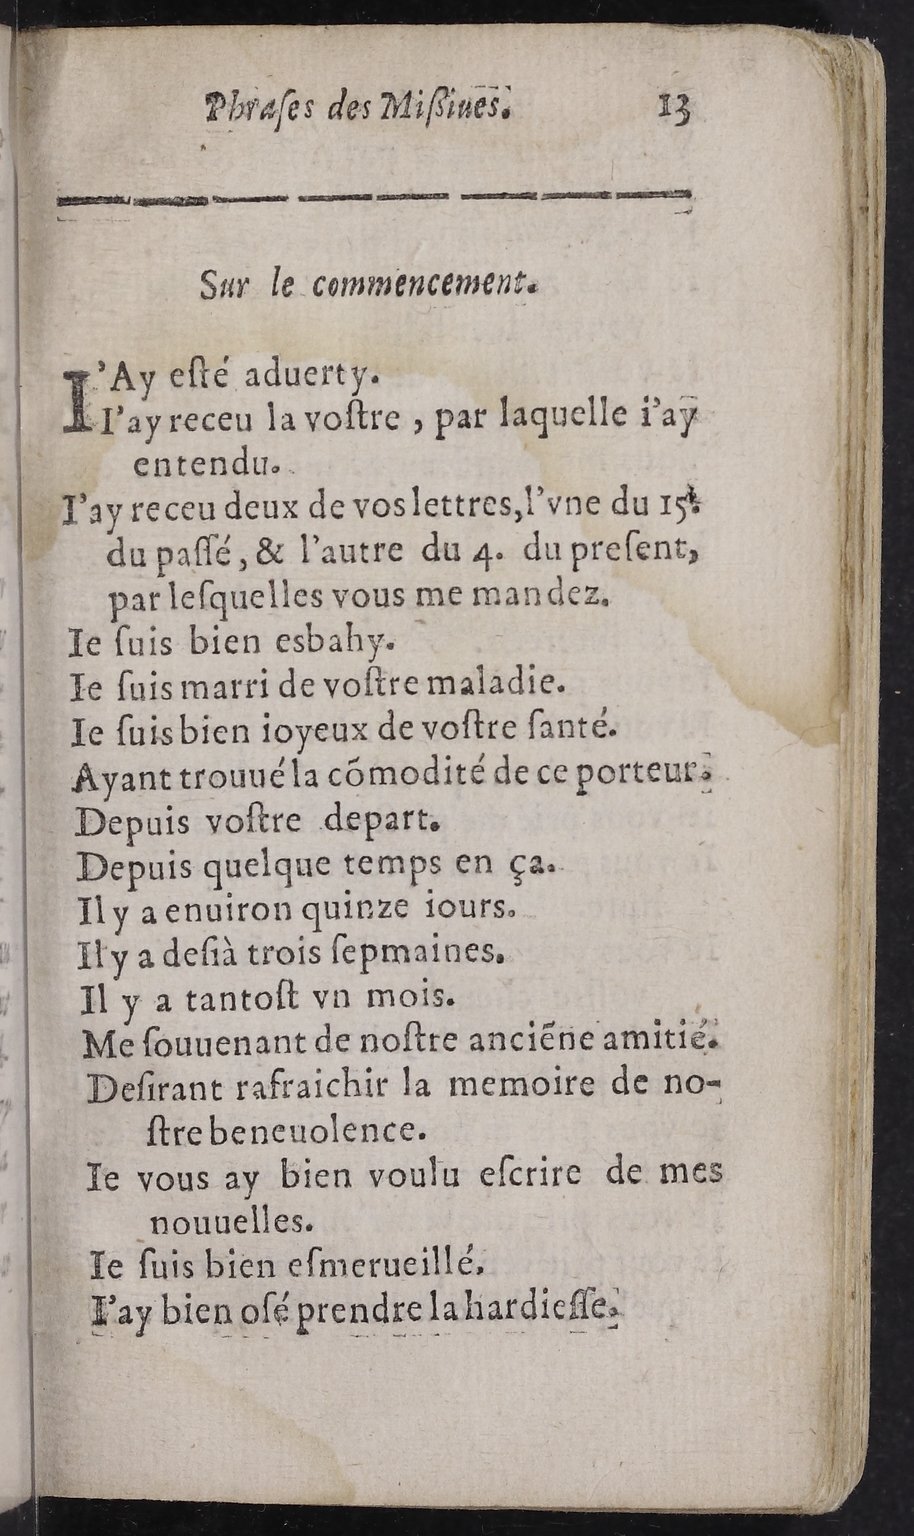 Phraſes des Miſsiues. 13
Sur le commencement.
I'Ay eſté aduerty.
I'ay receu la voſtre , par laquelle i'ay
entendu.
I'ay receu deux de vos lettres, l'vne du 15.
du paſſé, & l'autre du 4. du preſent,
par leſquelles vous me mandez.
Ie ſuis bien esbahy.
Ie ſuis marri de voſtre maladie.
Ie ſuis bien ioyeux de voſtre ſanté.
Ayant trouué la cõmodité de ce porteur.
Depuis voſtre depart.
Depuis quelque temps en ça.
Il y a enuiron quinze iours.
Il y a deſià trois ſepmaines.
Il y a tantoſt vn mois.
Me ſouuenant de noſtre anciẽne amitié.
Deſirant rafraichir la memoire de no-
ſtre beneuolence.
Ie vous ay bien voulu eſcrire de mes
nouuelles.
Ie ſuis bien eſmerueillé.
I'ay bien oſé prendre la hardieſſe.